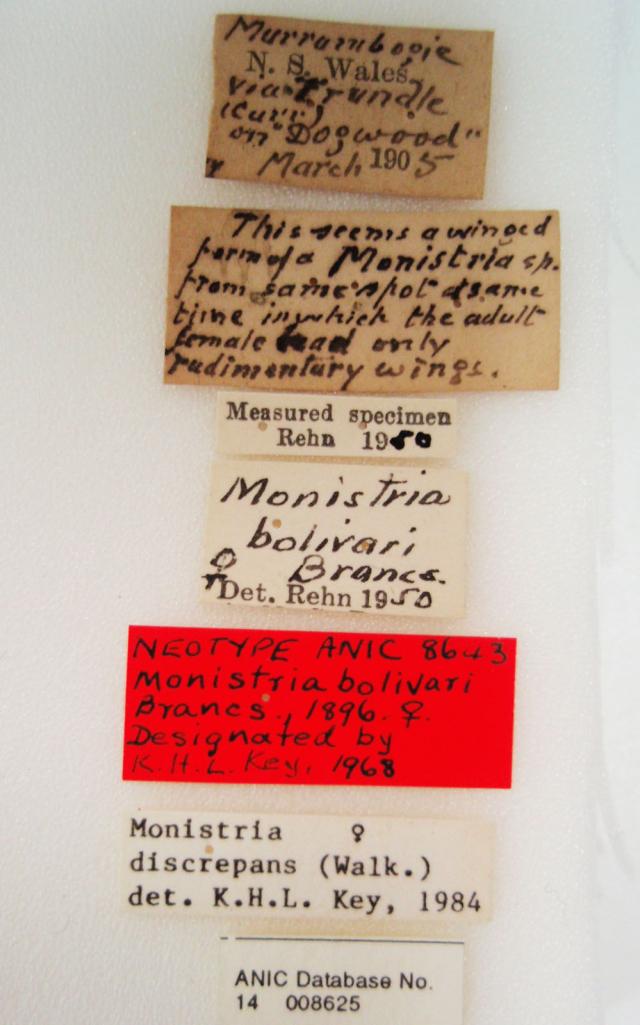 Murrumbogie
N. S. Wales,
via Trundle
(Curr)
on "Dogwood"
March 1905
This seems a winged
form of a Monistria sp.
from same spot & same
time in which the adult
female had only
rudimentary wings.
Measured specimen
Rehn 1950
Monistria
bolivari
♀ Brancs.
Det. Rehn 1950
NEOTYPE ANIC 8643
Monistria bolivari
Brancs., 1896. ♀.
Designated by
K.H.L. Key, 1968
Monistria ♀
discrepans (Walk.)
det. K.H.L. Key, 1984
ANIC Database No.
14 008625